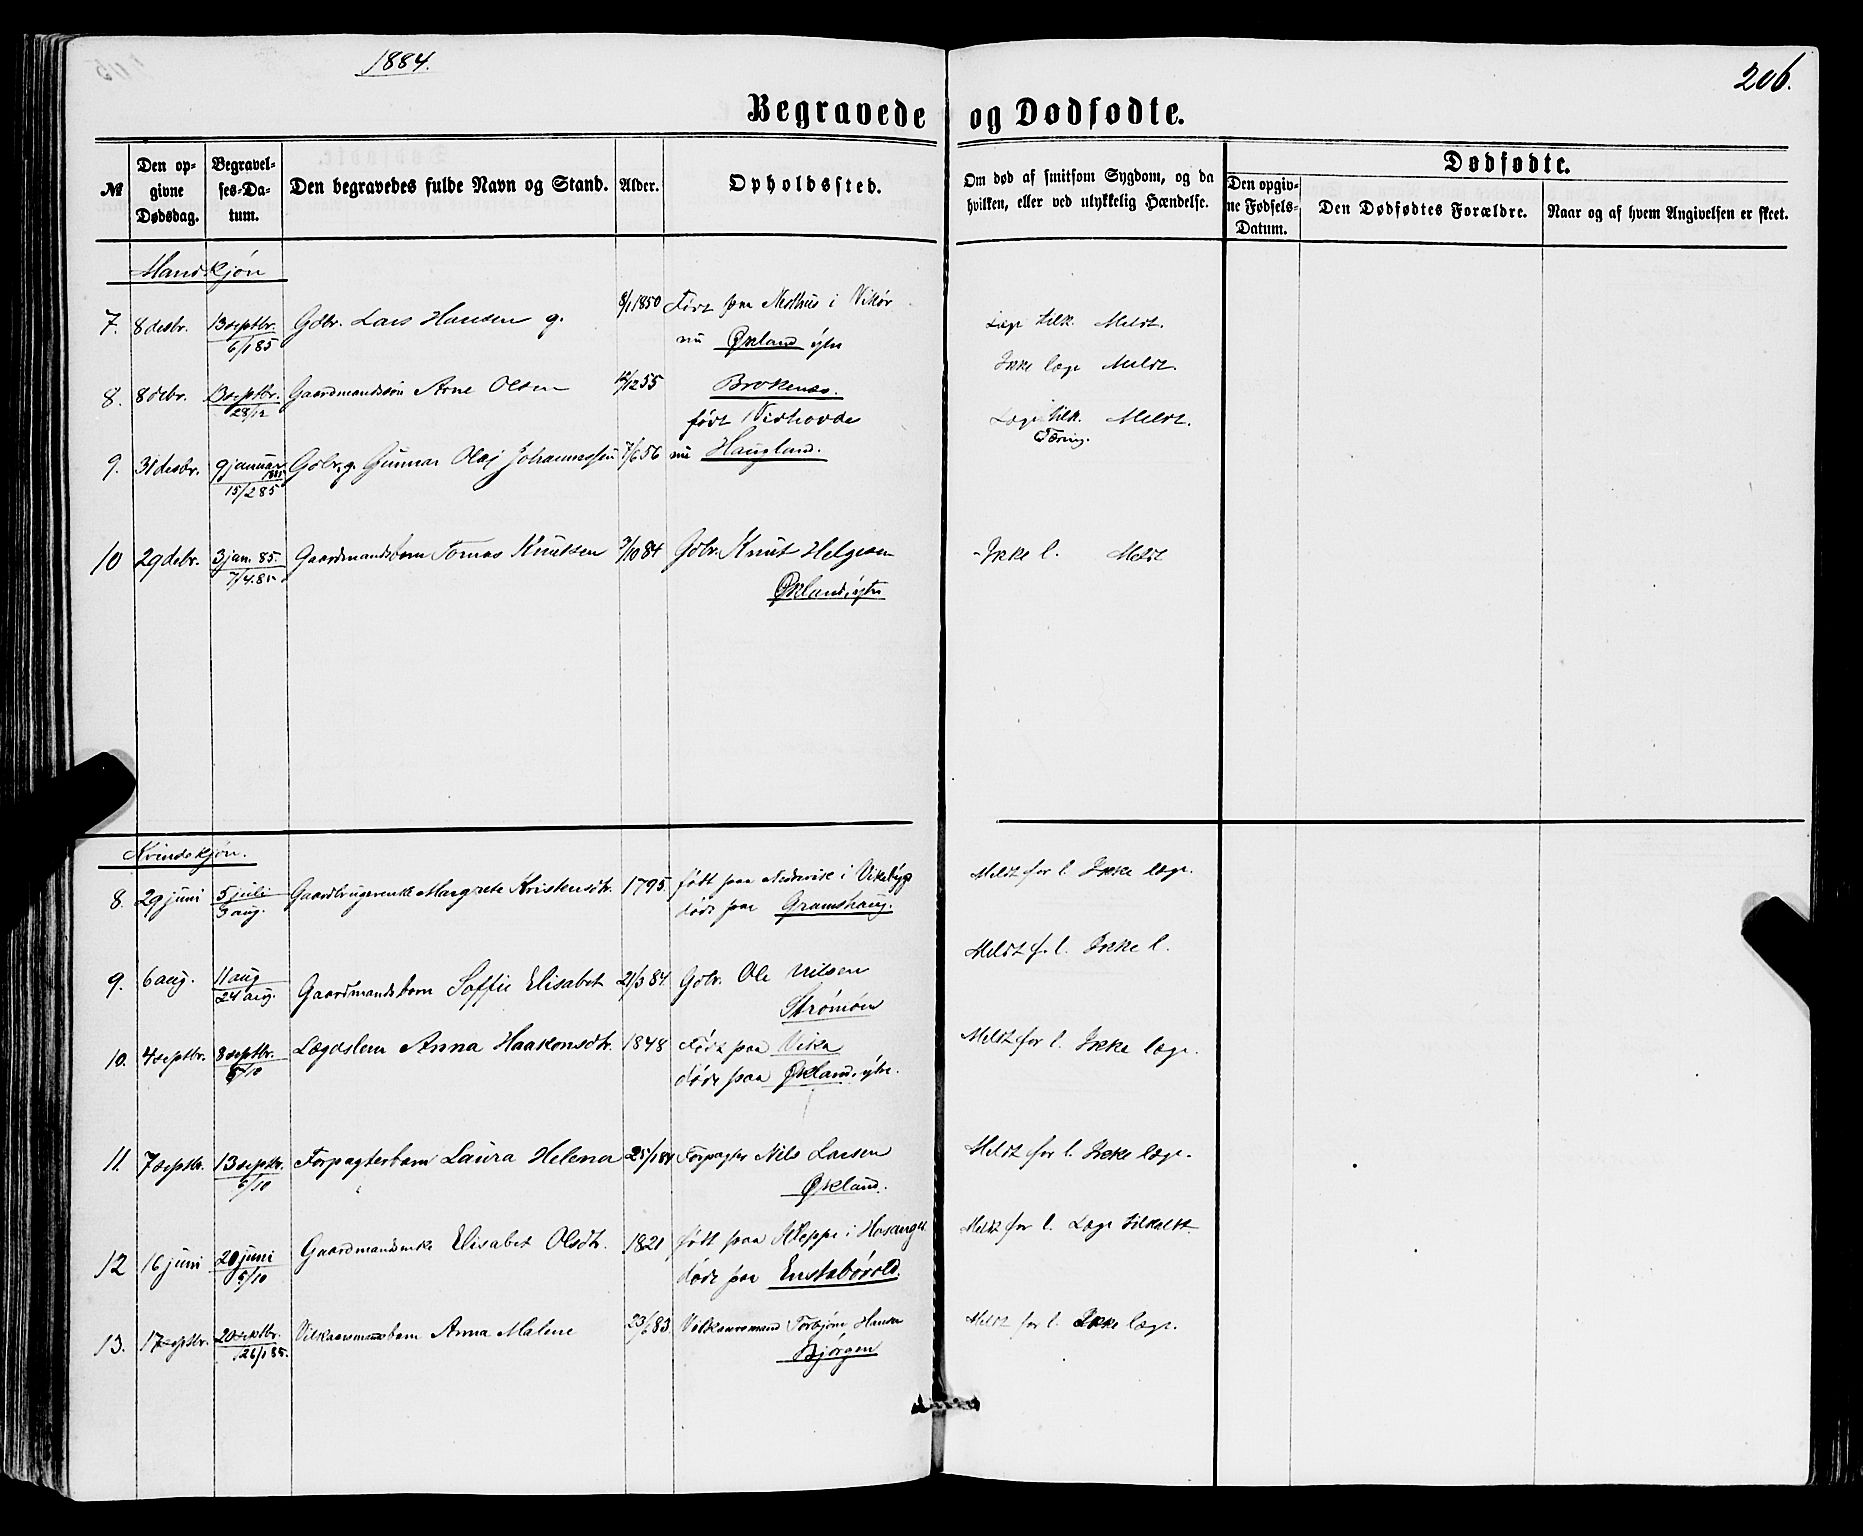 1884.
206.
Begravede og Dødfødte.
№
Den opgivne Dødsdag.
Begravelses-Datum.
Den begravedes fulde Navn og Stand.
Alder.
Opholdssted.
Om død af smitsom Sygdom, og da hvilken, eller ved ulykkelig Hændelse.
Dødfødte.
Den opgivne Fødsels-Datum.
Den Dødfødtes Forældre.
Naar og af hvem Angivelsen er skeet.
Mandkjøn
7. 8 desbr. 13 septbr. 6/1 85 Gdbr. Lars Hansen g. 8/1 1850 Født paa Nesthus i Vikør
nu Økland ytre
Læge tilk. Meldt.
8. 8 debr. 13 septbr. 28/12 Gaardmandssøn Arne Olsen 12/12 55 Brokenes.
Ikke læge Meldt.
9. 31 desbr. 9 januar 1885 15/2 85 Gdbr. g. Gunnar Olaj Johannessen 7/6 56 født Vidhovde
nu Haugland.
Læge tilk. Meldt.
Tæring.
10 29 debr. 3 jan. 85. 7/4.85 Gaardmandsbarn Tomas Knutsen 9/10 84 Gdbr. Knut Helgesen
Økland, ytre
Ikke l. Meldt
Kvindekjøn.
8. 29 juni 5 juli 3 aug. Gaardbrugerenke Margrete Kristensdtr. 1795. født paa Nedrevik i Vikebygd
døde paa Gramshaug.
Meldt for l. Ikke læge.
9. 6 aug. 11 aug 24 aug. Gaardmandsbarn Soffie Elisabet 21/3 84. Gdbr. Ole Nilsen
Strømøen
Meldt for l. Ikke l.
10. 4 septbr. 8 septbr. 5/10 Lægdslem Anna Haakonsdtr. 1848 Født paa Vika
døde paa Økland, ytre.
Meldt for l. Ikke læge.
11. 7 septbr. 13 septbr. 5/10 Forpagterbarn Laura Helena 25/1 84 Forpagter Nils Larsen
Økland.
Meldt for l. Ikke læge.
12 16 juni 20 juni 5/10 Gaardmandsenke Elisabet Olsdtr. 1821 født paa Kleppe i Hosanger
døde paa Enstabøvold.
Meldt for l. Læge tilkaldt.
13. 17 septbr. 20 septbr. 26/1 85. Vilkaarsmandsbarn Anna Malene 23/6 83. Vilkaarsmand Torbjørn Hansen
Bjørgen
Meldt for l. Ikke læge.